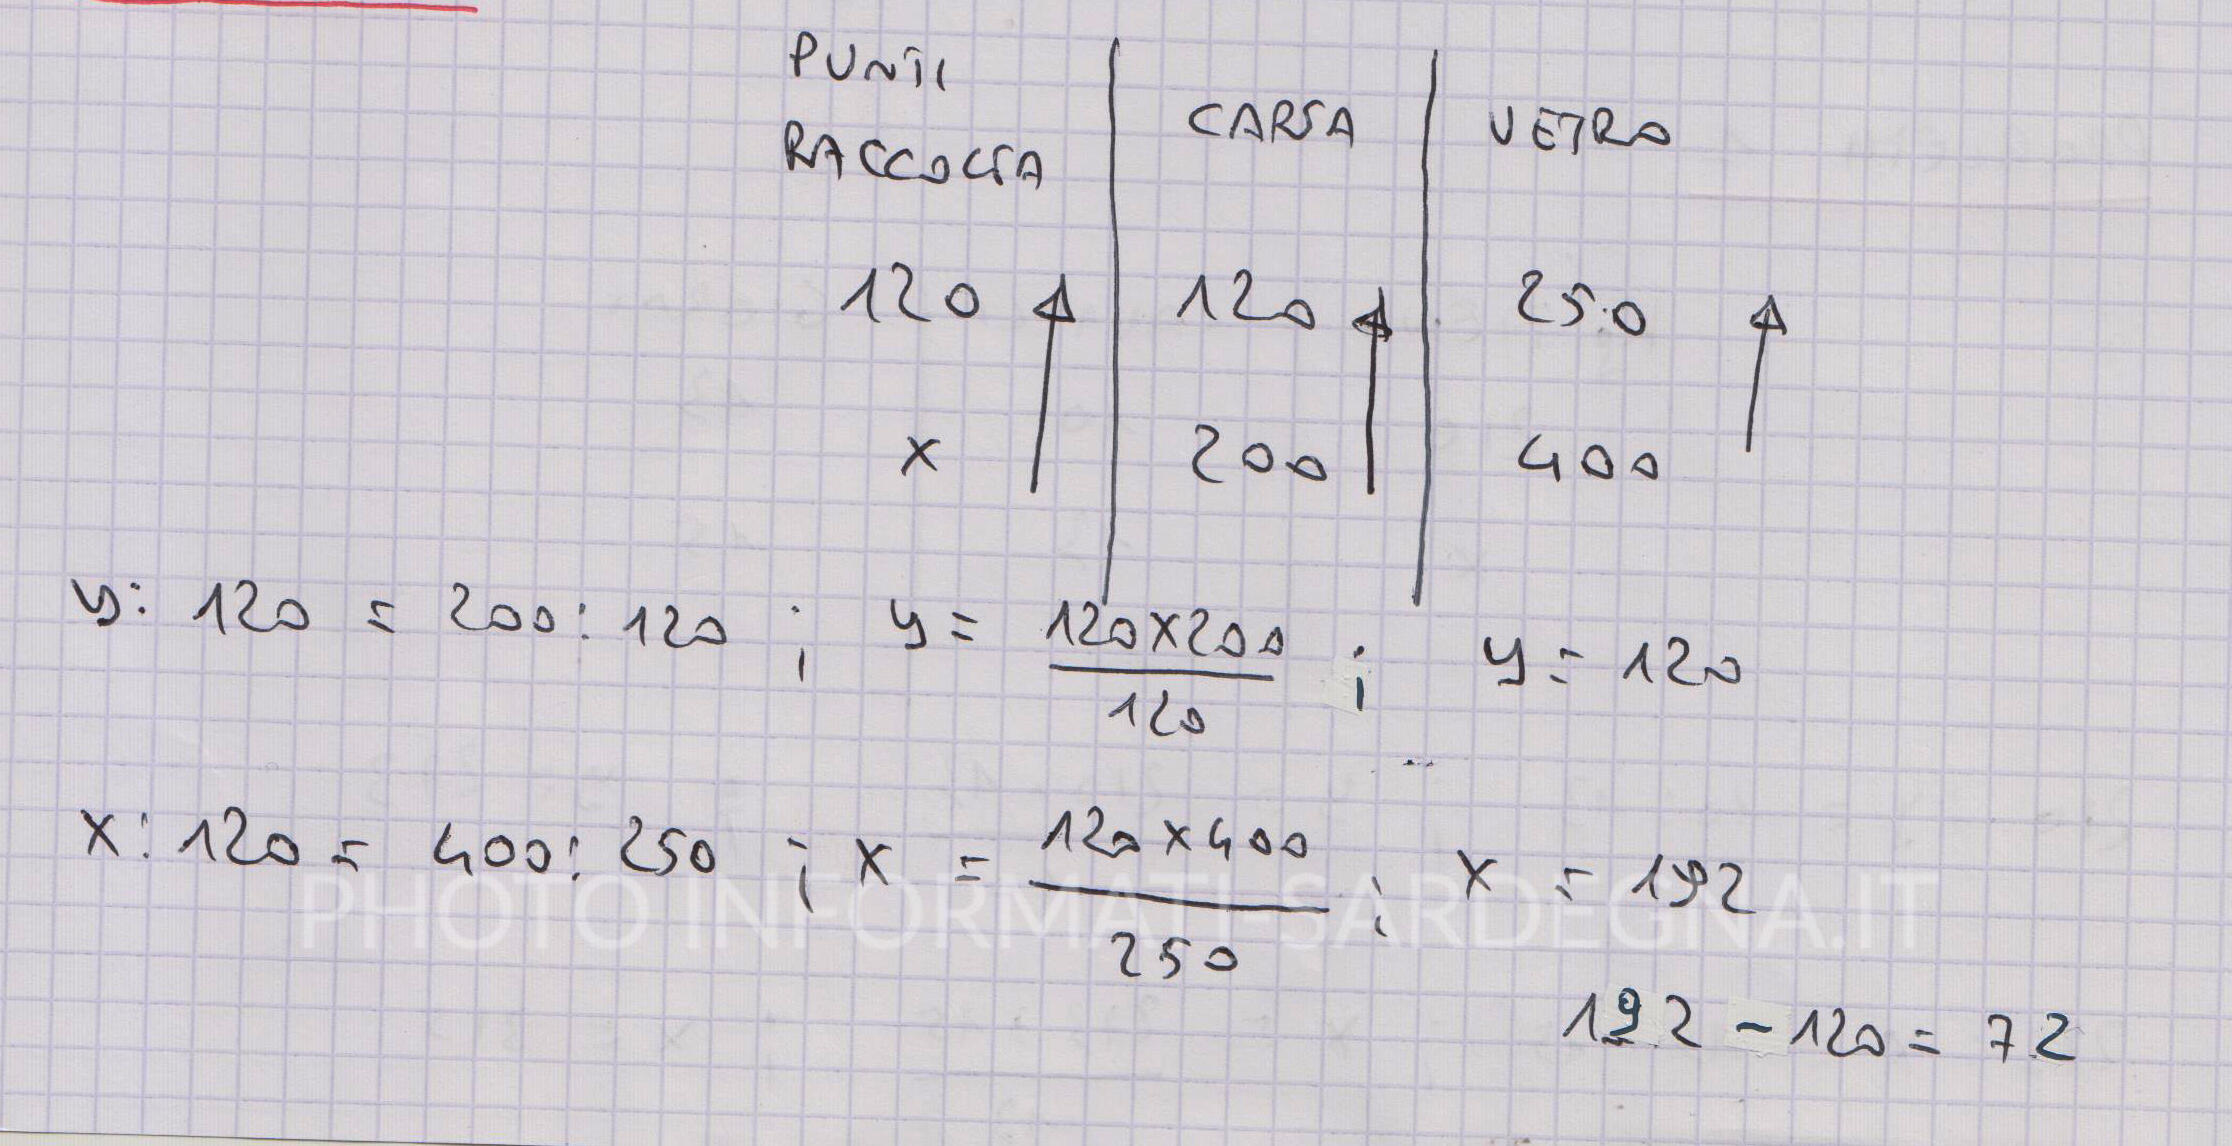 PUNTI
RACCOLTA
CARTA
VETRO
120 120 250
x 200 400
y: 120 = 200: 120 ; y = 120x200 / 120 ; y = 120
x: 120 = 400: 250 ; x = 120x400 / 250 ; x = 192
PHOTO INFORMATI-SARDEGNA.IT
192 - 120 = 72